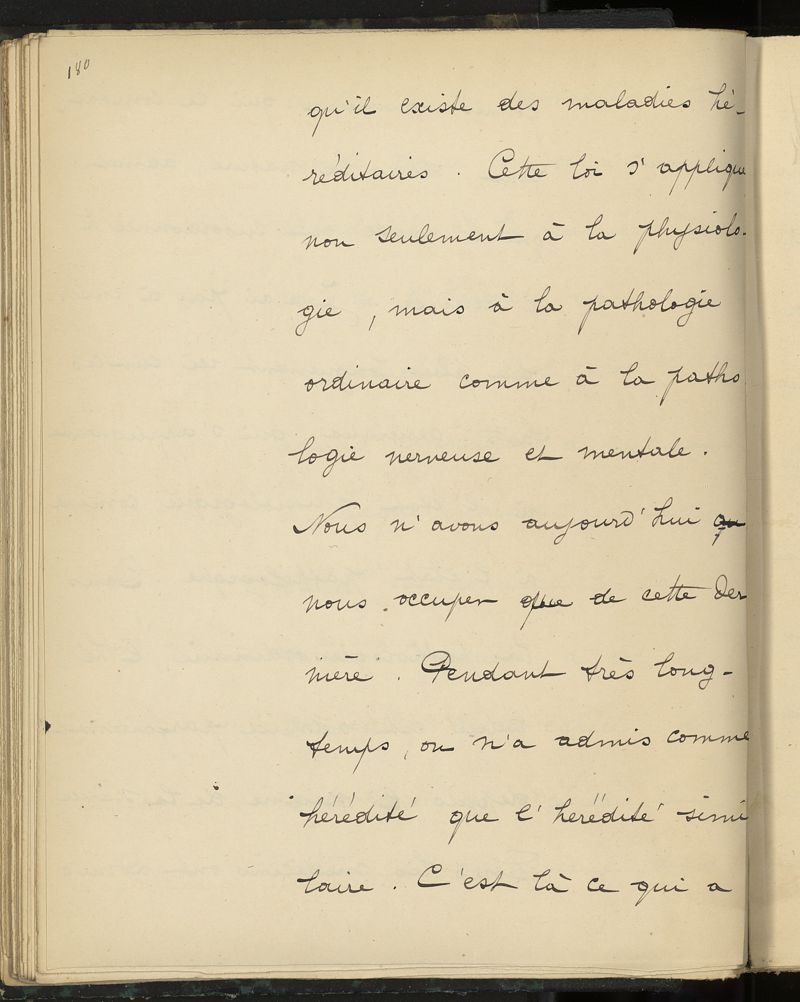 180
qu'il existe des maladies hé-
réditaires. Cette loi s'applique
non seulement à la physiolo-
gie, mais à la pathologie
ordinaire comme à la patho
logie nerveuse et mentale.
Nous n'avons aujourd'hui qu
nous occuper que de cette der
nière. Pendant très long-
temps, on n'a admis comme
hérédité que l'hérédité simi
laire. C'est là ce qui a